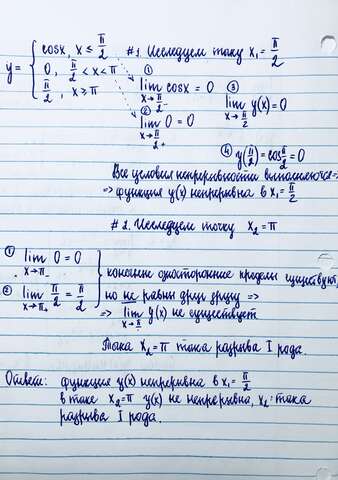 y = { cosx, x ≤ π/2
0, π/2 < x < π
π/2, x ≥ π
#1. Исследуем точку x₁ = π/2
① lim x→π/2₋ cosx = 0
② lim x→π/2₊ 0 = 0
③ lim x→π/2 y(x) = 0
④ y(π/2) = cos π/2 = 0
Все условия непрерывности выполняются =>
=> функция y(x) непрерывна в x₁ = π/2
#2. Исследуем точку x₂ = π
① lim x→π₋ 0 = 0
② lim x→π₊ π/2 = π/2
конечные односторонние пределы существуют,
но не равны друг другу =>
=> lim x→π y(x) не существует
Точка x₂ = π точка разрыва I рода.
Ответ: функция y(x) непрерывна в x₁ = π/2
в точке x₂ = π y(x) не непрерывна, x₂ - точка
разрыва I рода.